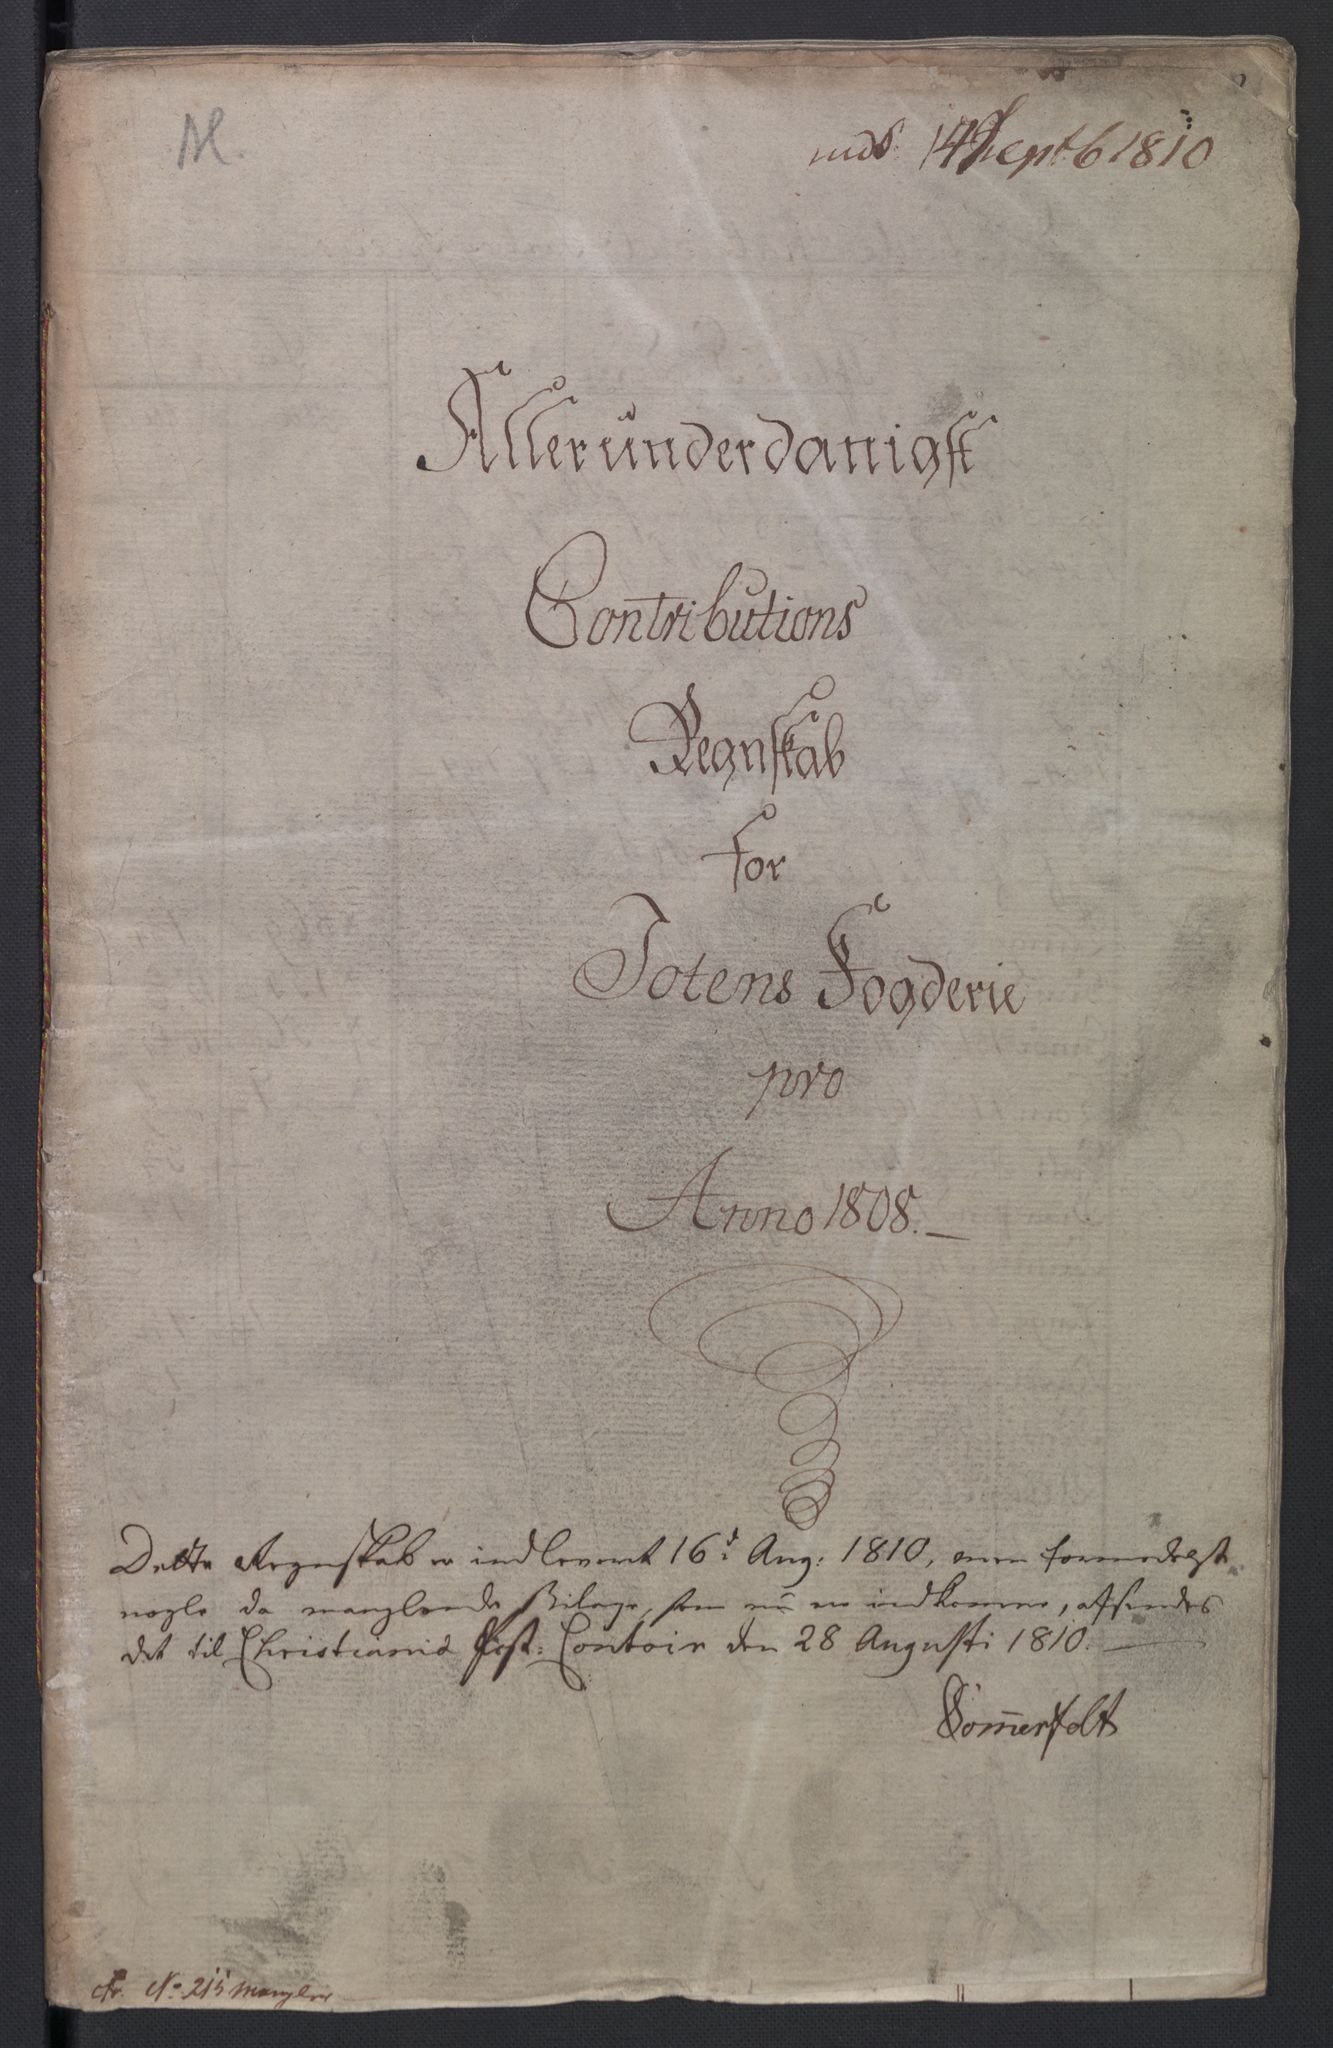 M.
inds 14 Septb 1810
Alleründerdanigst
Contributions
Regnskab
for
Totens Fogderie
pro
Anno 1808.
Dette Regnskab er indleveret 16d. Aug: 1810, men formedelst
nogle da manglende Bilage, som nu er indkomne, afsendes
det til Christiania Post: Contoir den 28 Augusti 1810.
Sommerfelt
No. 215 mangler